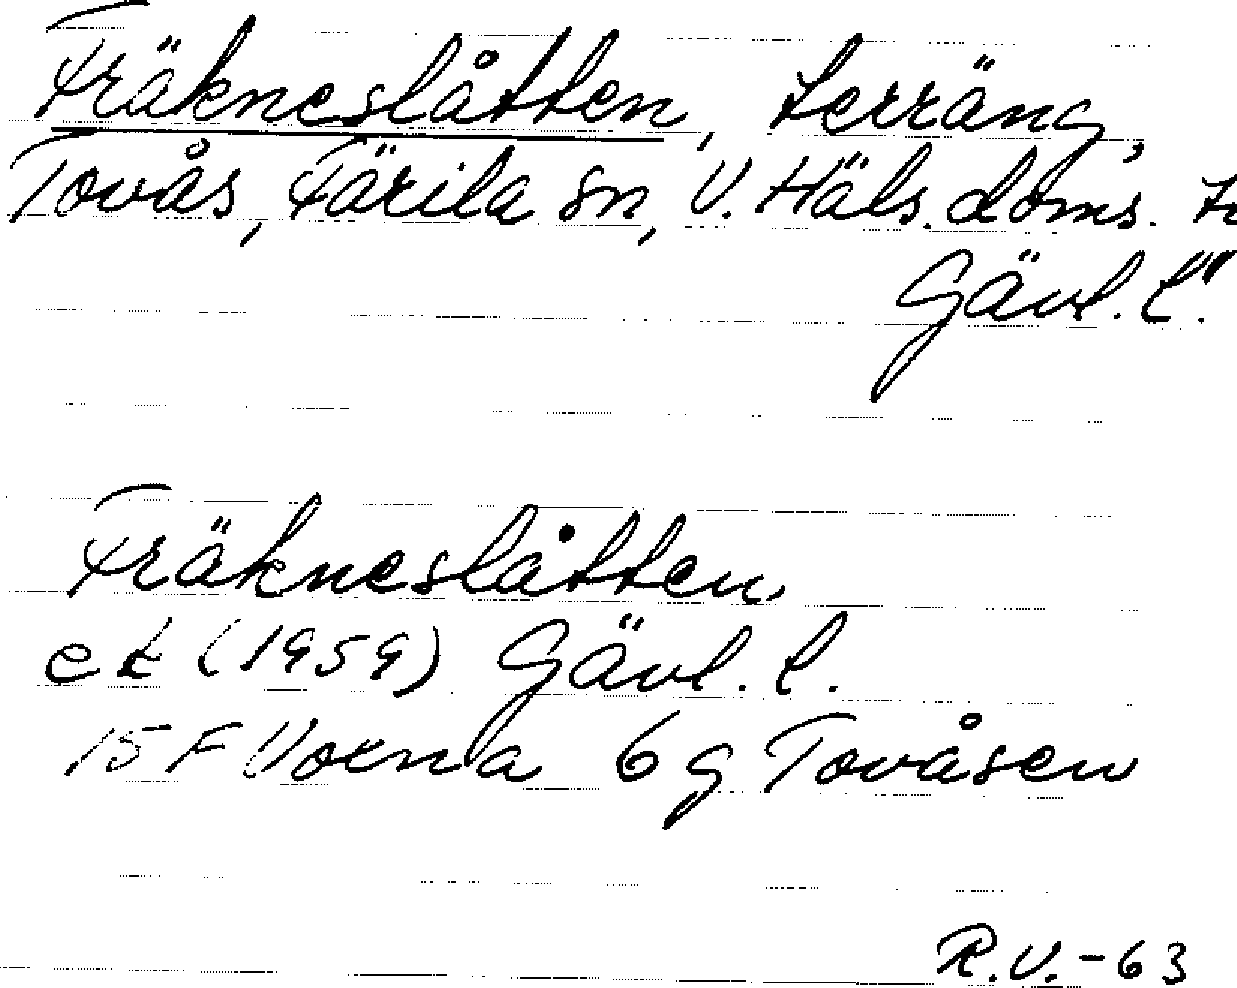 Fräkneslåtten, terräng,
Tovås, Färila sn, V. Häls. doms.
Gävl. l.
Fräkneslåtten
ek (1959) Gävl. l.
15 F Voxna 6 g Tovåsen
R.V.-63